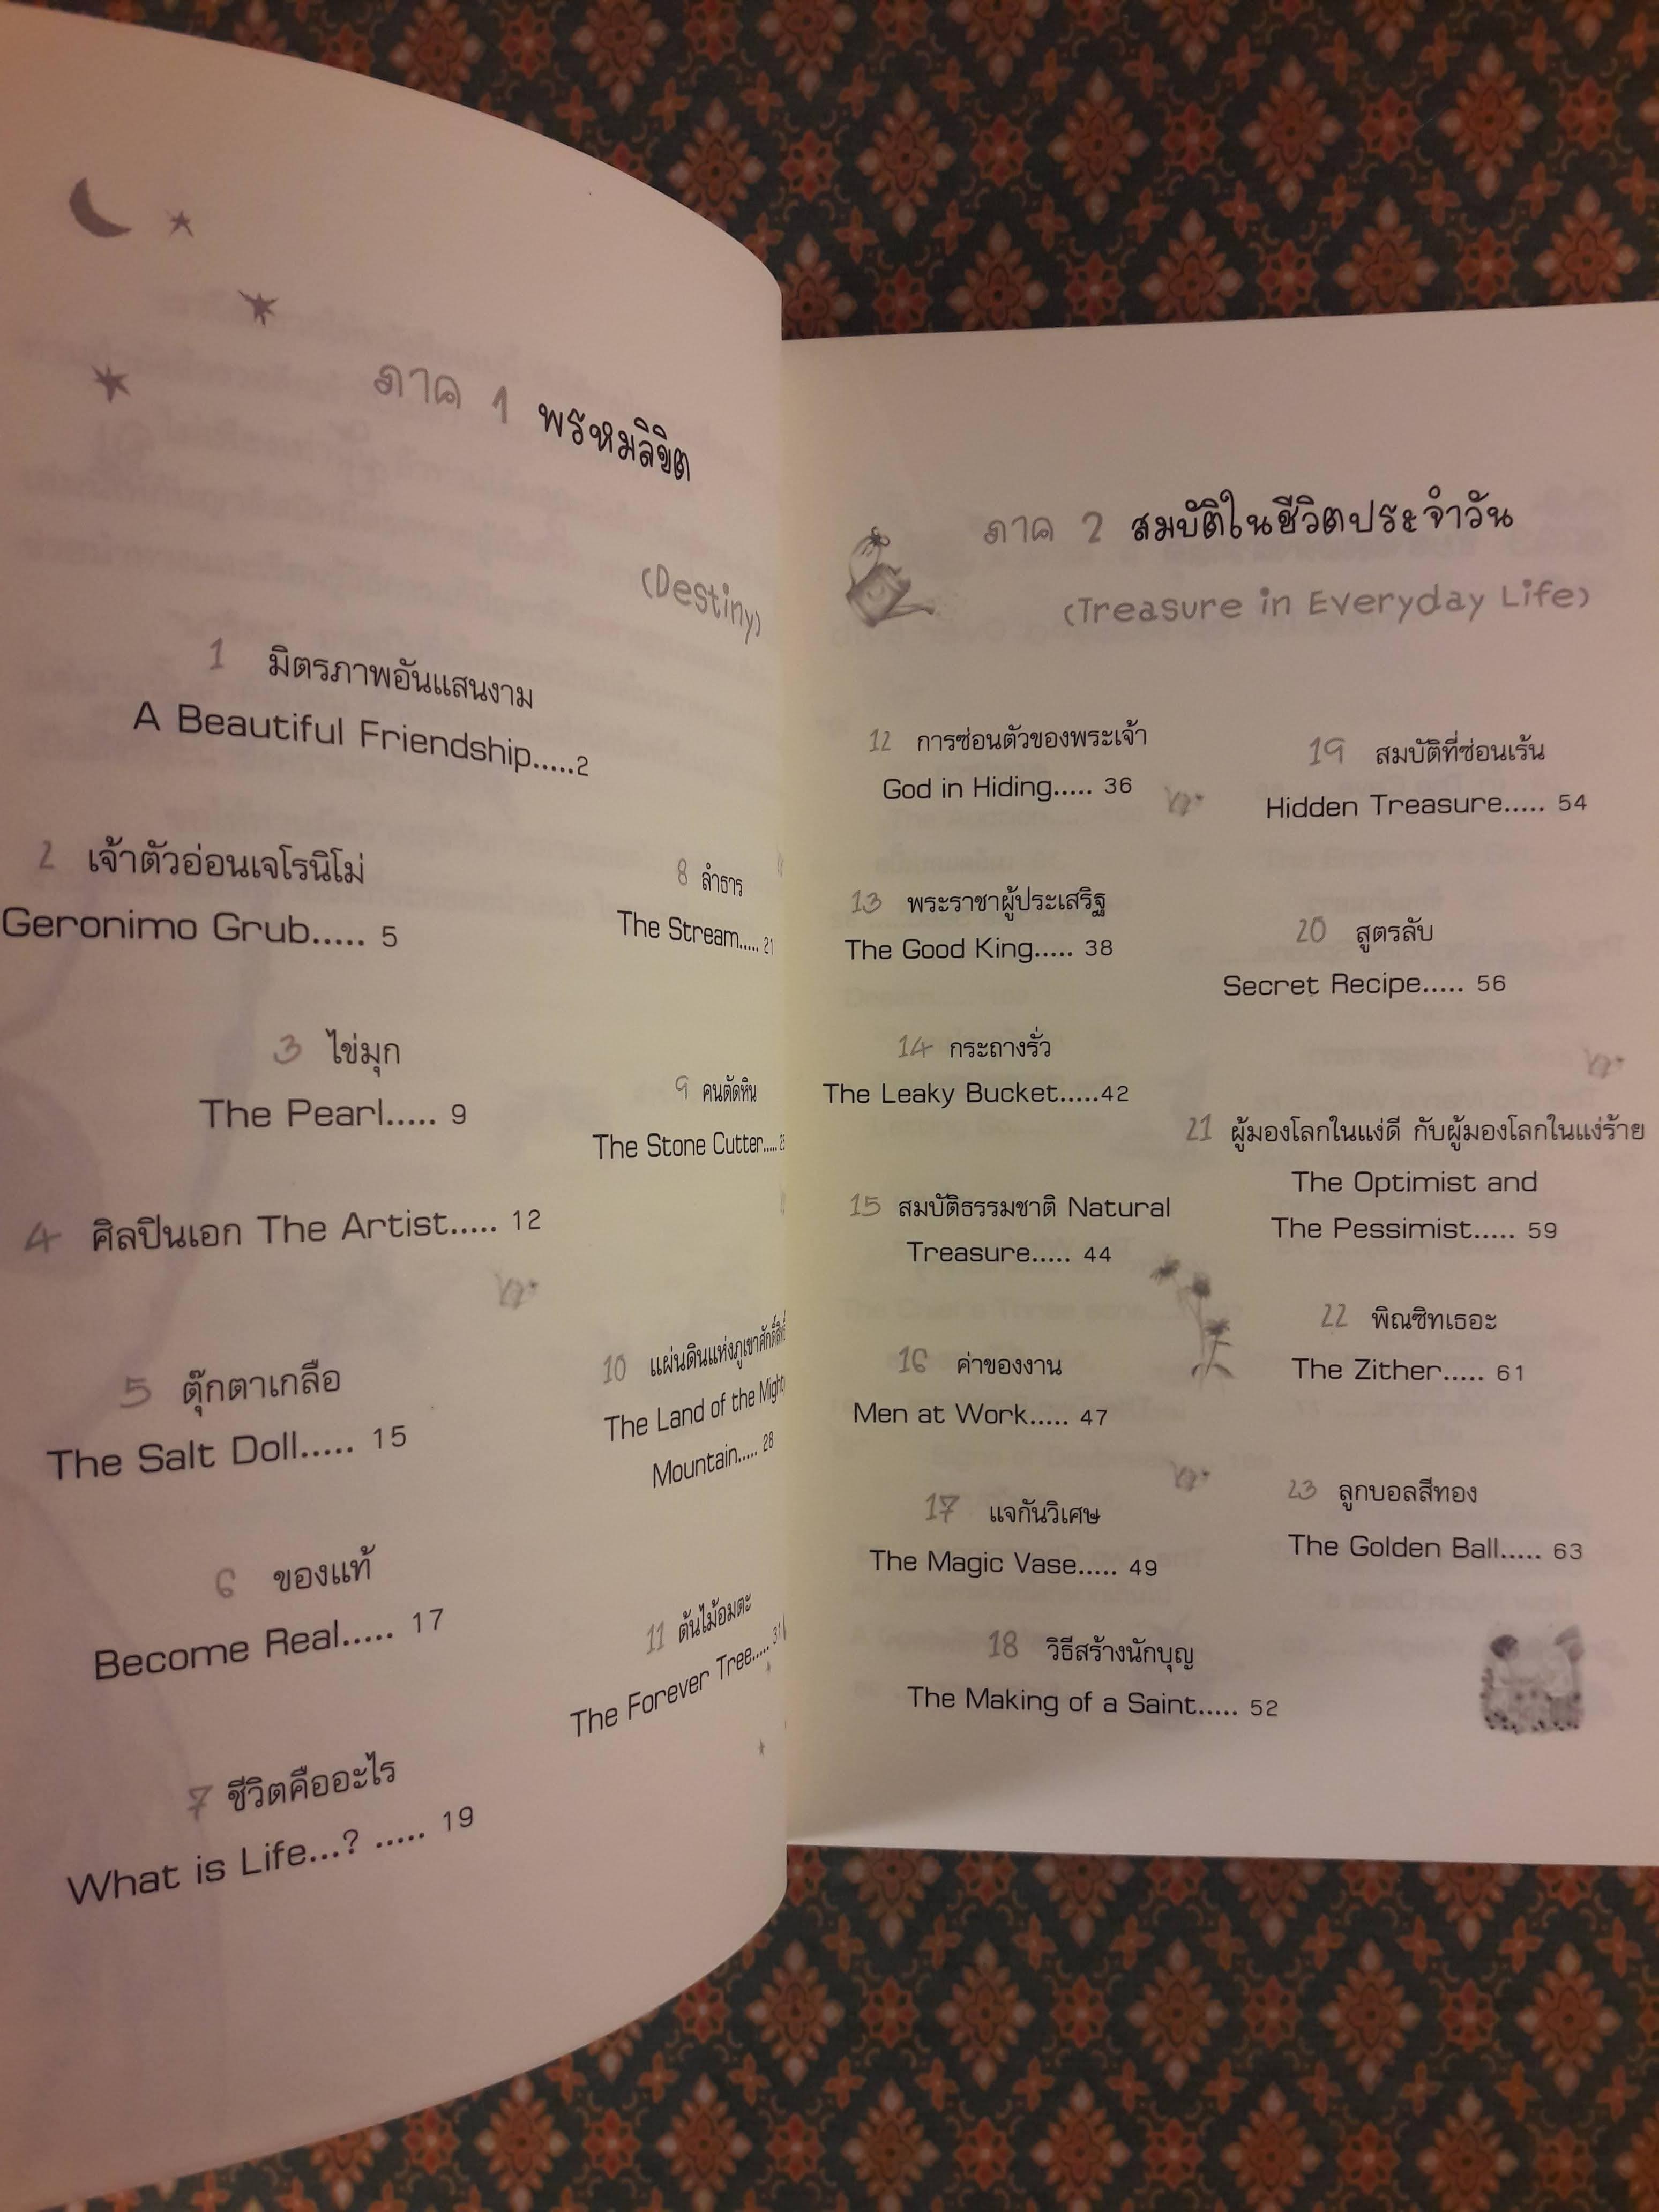 ภาค 1 พรหมลิขิต
(Destiny)
1 มิตรภาพอันแสนงาม
A Beautiful Friendship.....2
2 เจ้าตัวอ่อนเจโรนิโม่
Geronimo Grub..... 5
3 ไข่มุก
The Pearl..... 9
4 ศิลปินเอก The Artist..... 12
5 ตุ๊กตาเกลือ
The Salt Doll..... 15
6 ของแท้
Become Real..... 17
7 ชีวิตคืออะไร
What is Life...? ..... 19
8 ลำธาร
The Stream..... 21
9 คนตัดหิน
The Stone Cutter.....
10 แผ่นดินแห่งภูเขาศักดิ์สิทธิ์
The Land of the Mighty
Mountain..... 28
11 ต้นไม้อมตะ
The Forever Tree..... 31
ภาค 2 สมบัติในชีวิตประจำวัน
(Treasure in Everyday Life)
12 การซ่อนตัวของพระเจ้า
God in Hiding..... 36
13 พระราชาผู้ประเสริฐ
The Good King..... 38
14 กระถางรั่ว
The Leaky Bucket.....42
15 สมบัติธรรมชาติ Natural
Treasure..... 44
16 ค่าของงาน
Men at Work..... 47
17 แจกันวิเศษ
The Magic Vase..... 49
18 วิธีสร้างนักบุญ
The Making of a Saint..... 52
19 สมบัติที่ซ่อนเร้น
Hidden Treasure..... 54
20 สูตรลับ
Secret Recipe..... 56
21 ผู้มองโลกในแง่ดี กับผู้มองโลกในแง่ร้าย
The Optimist and
The Pessimist..... 59
22 พิณซิทเธอะ
The Zither..... 61
23 ลูกบอลสีทอง
The Golden Ball..... 63